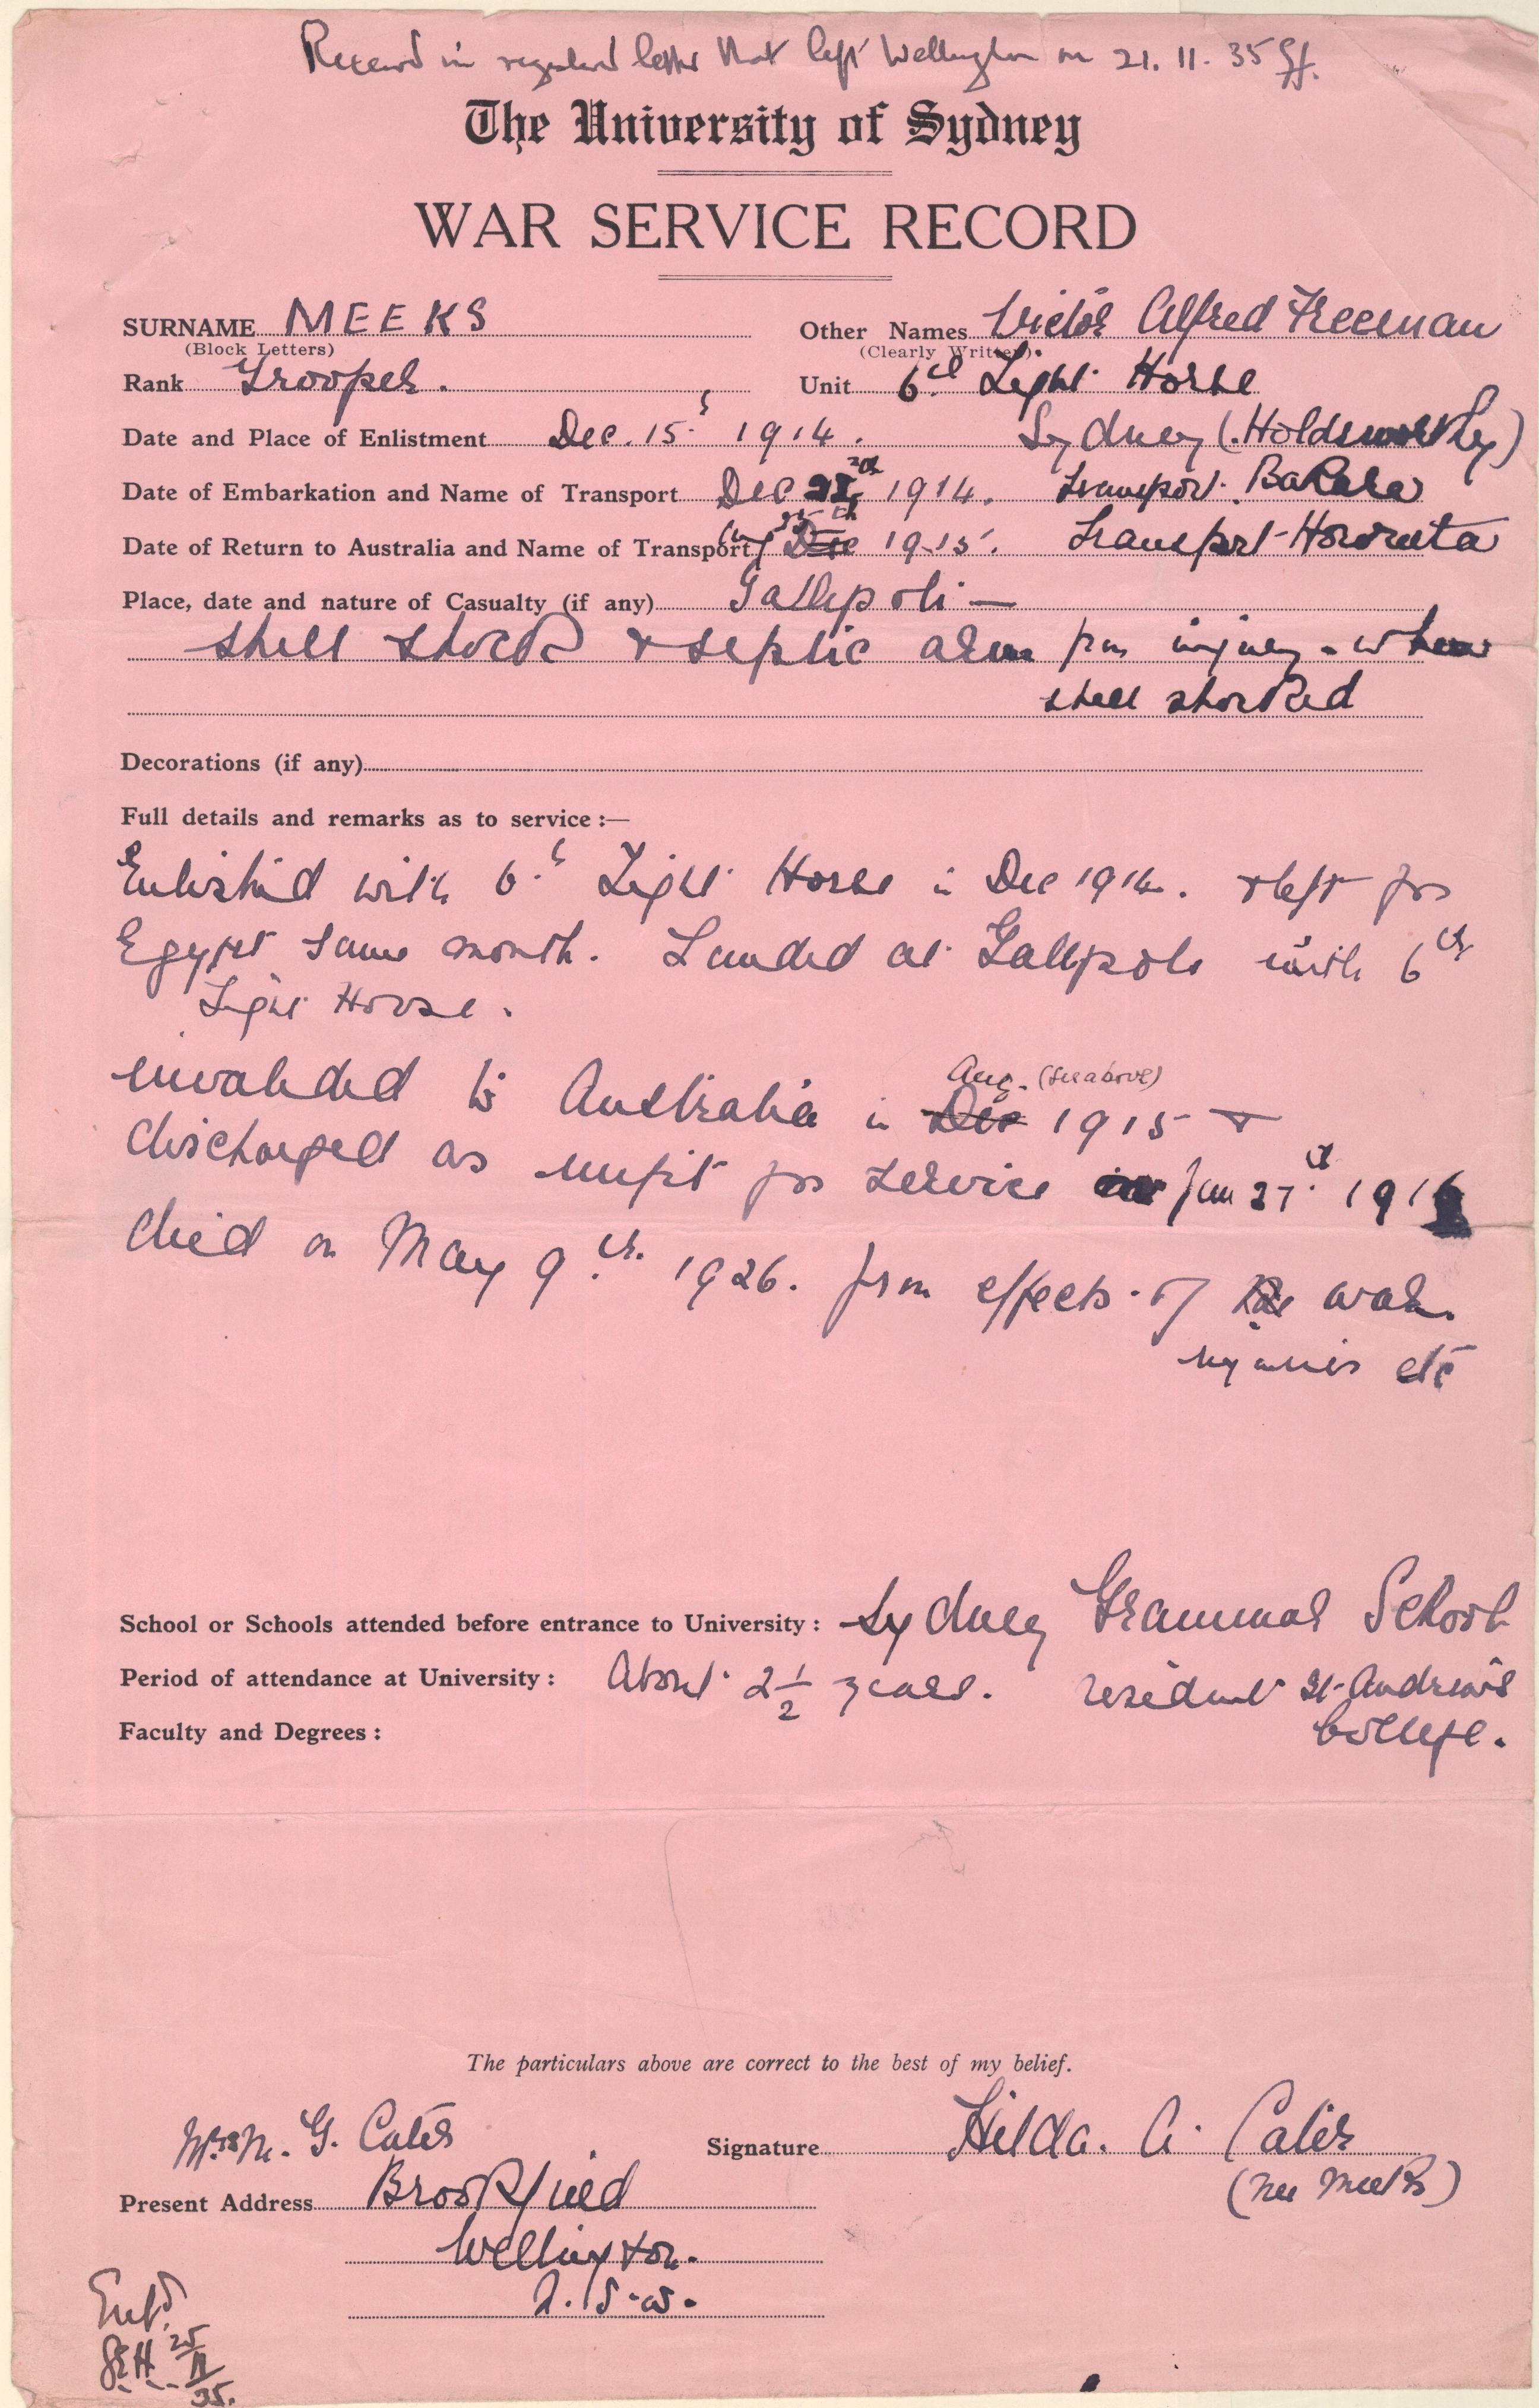 Received in registered letter that left Wellington on 21. 11. 35
The University of Sydney
WAR SERVICE RECORD
SURNAME MEEKS Other Names Victor Alfred Freeman
(Block Letters) (Clearly Written).
Rank Trooper. Unit 6th Light Horse
Date and Place of Enlistment Dec. 15 1914. Sydney (Holdsworthy)
Date of Embarkation and Name of Transport Dec 1914. Transport. Bakara
Date of Return to Australia and Name of Transport Aug 25th Dec 1915. Transport Hororata
Place, date and nature of Casualty (if any) Gallipoli —
shell shock & septic arm from injury - when
shell shocked
Decorations (if any)
Full details and remarks as to service :—
Enlisted with 6th Light Horse in Dec 1914. & left for
Egypt same month. Landed at Gallipoli with 6th
Light Horse.
Aug. (see above)
invalided to Australia in Dec 1915 &
discharged as unfit for service Jan 27th 1916
died on May 9th. 1926. from effects of the war
injuries etc
School or Schools attended before entrance to University : Sydney Grammar School
Period of attendance at University : About 2 1/2 years. resident St. Andrew's
Faculty and Degrees : College.
The particulars above are correct to the best of my belief.
Mrs M. G. Cater Signature Hilda. A. Cater
(nee Meeks)
Present Address Brookfield
Wellington.
N.S.W.
Entd.
25/11/35.